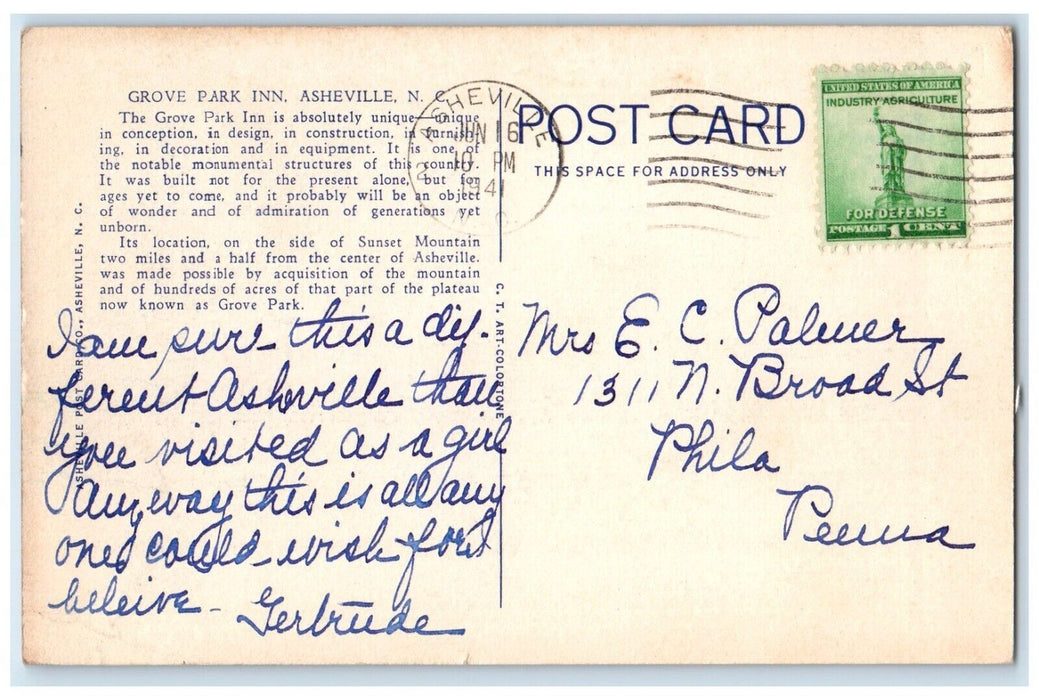 GROVE PARK INN, ASHEVILLE, N. C.
The Grove Park Inn is absolutely unique—unique
in conception, in design, in construction, in furnish-
ing, in decoration and in equipment. It is one of
the notable monumental structures of this country.
It was built not for the present alone, but for
ages yet to come, and it probably will be an object
of wonder and of admiration of generations yet
unborn.
Its location, on the side of Sunset Mountain
two miles and a half from the center of Asheville,
was made possible by acquisition of the mountain
and of hundreds of acres of that part of the plateau
now known as Grove Park.
SHEVILLE POST CARD CO., ASHEVILLE, N. C.
I am sure this a dif-
ferent Asheville than
you visited as a girl
Anyway this is all any
one could wish for I
beleive -
Gertrude
C. T. ART-COLORTONE
ASHEVILLE
JUN 16
10 PM
1941
N. C.
POST CARD
THIS SPACE FOR ADDRESS ONLY
UNITED STATES OF AMERICA
INDUSTRY AGRICULTURE
FOR DEFENSE
POSTAGE 1 CENT
Mrs E. C. Palmer
1311 N. Broad St
Phila
Penna